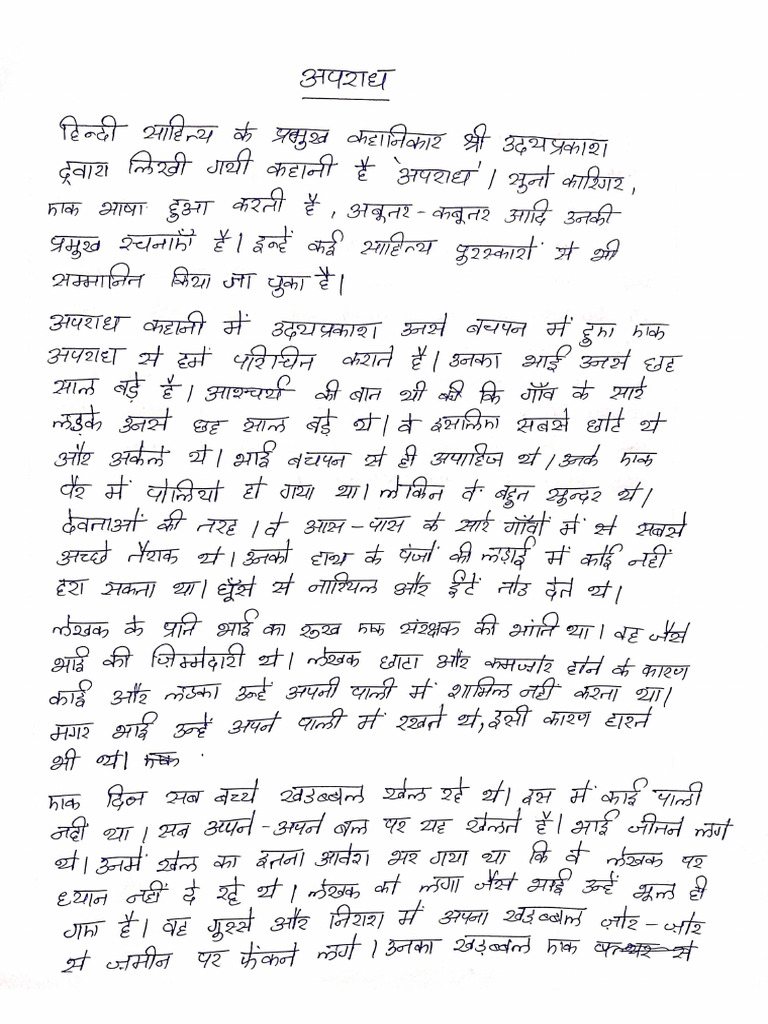 अपराध
हिन्दी साहित्य के प्रमुख कहानिकार श्री उदयप्रकाश
द्वारा लिखी गयी कहानी है 'अपराध'। सुनो कारिगर,
एक भाषा हुआ करती है, अबूतर-कबूतर आदि उनकी
प्रमुख रचनाएँ है। इन्हें कई साहित्य पुरस्कारों से भी
सम्मानित किया जा चुका है।
अपराध कहानी में उदयप्रकाश उनसे बचपन में हुए एक
अपराध से हमें परिचित कराते है। उनका भाई उनसे छह
साल बड़े है। आश्चर्य की बात थी की कि गाँव के सारे
लड़के उनसे छह साल बड़े थे। वे इसलिए सबसे छोटे थे
और अकेले थे। भाई बचपन से ही अपाहिज थे। उनके एक
पैर में पोलियो हो गया था। लेकिन वे बहुत सुन्दर थे।
देवताओं की तरह। वे आस-पास के सारे गाँवों में से सबसे
अच्छे तैराक थे। उनको हाथ के पंजों की लड़ाई में कोई नहीं
हरा सकता था। घूँसे से नारियल और ईंटें तोड देते थे।
लेखक के प्रति भाई का रुख एक संरक्षक की भांति था। वह जैसे
भाई की जिम्मेदारी थे। लेखक छोटा और कमज़ोर होने के कारण
कोई और लडका उन्हें अपनी पाली में शामिल नहीं करता था।
मगर भाई उन्हें अपने पाली में रखते थे, इसी कारण हारते
भी थे।
एक दिन सब बच्चे खडब्बल खेल रहे थे। इस में कोई पाली
नहीं था। सब अपने-अपने बल पर यह खेलते है। भाई जीतने लगे
थे। उनमें खेल का इतना आवेश भर गया था कि वे लेखक पर
ध्यान नहीं दे रहे थे। लेखक को लगा जैसे भाई उन्हें भूल ही
गए है। वह गुस्से और निराश में अपना खडब्बल ज़ोर-ज़ोर
से ज़मीन पर फेंकने लगे। उनका खड़ब्बल एक पत्थर से